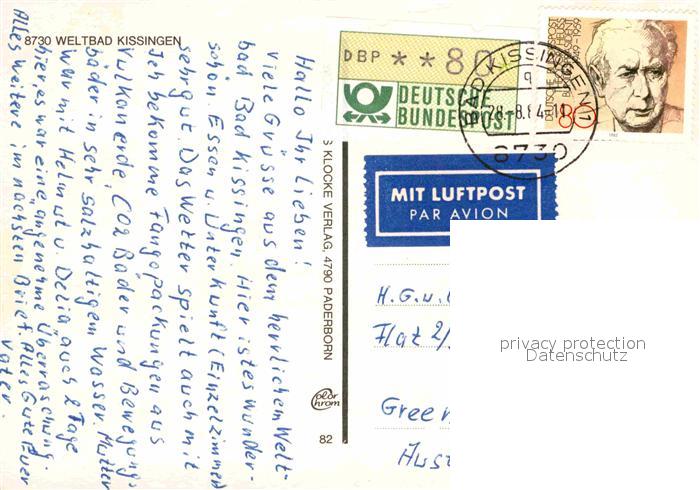 8730 WELTBAD KISSINGEN
Hallo Ihr Lieben!
Viele Grüsse aus dem herrlichen Welt-
bad Bad Kissingen. Hier ist es wunder-
schön Essen u. Unterkunft (Einzelzimmer)
sehr gut. Das Wetter spielt auch mit
Ich bekomme Fangopackungen aus
Vulkonerde, CO2 Bäder und Bewegungs-
bäder in sehr salzhaltigem Wasser. Mutter
war mit Helmut u. Delia auch 2 Tage
hier, es war eine angenehme Überraschung.
Alles weitere im nächsten Brief. Alles Gute Euer
Vater.
KLOCKE VERLAG, 4790 PADERBORN
color
chrom
82
DBP **80
DEUTSCHE
BUNDESPOST
BAD KISSINGEN 1
q
28.-8.84-11
8730
80
1982
MIT LUFTPOST
PAR AVION
H.G.u.
Flat 2/
Green
Aust
privacy protection
Datenschutz